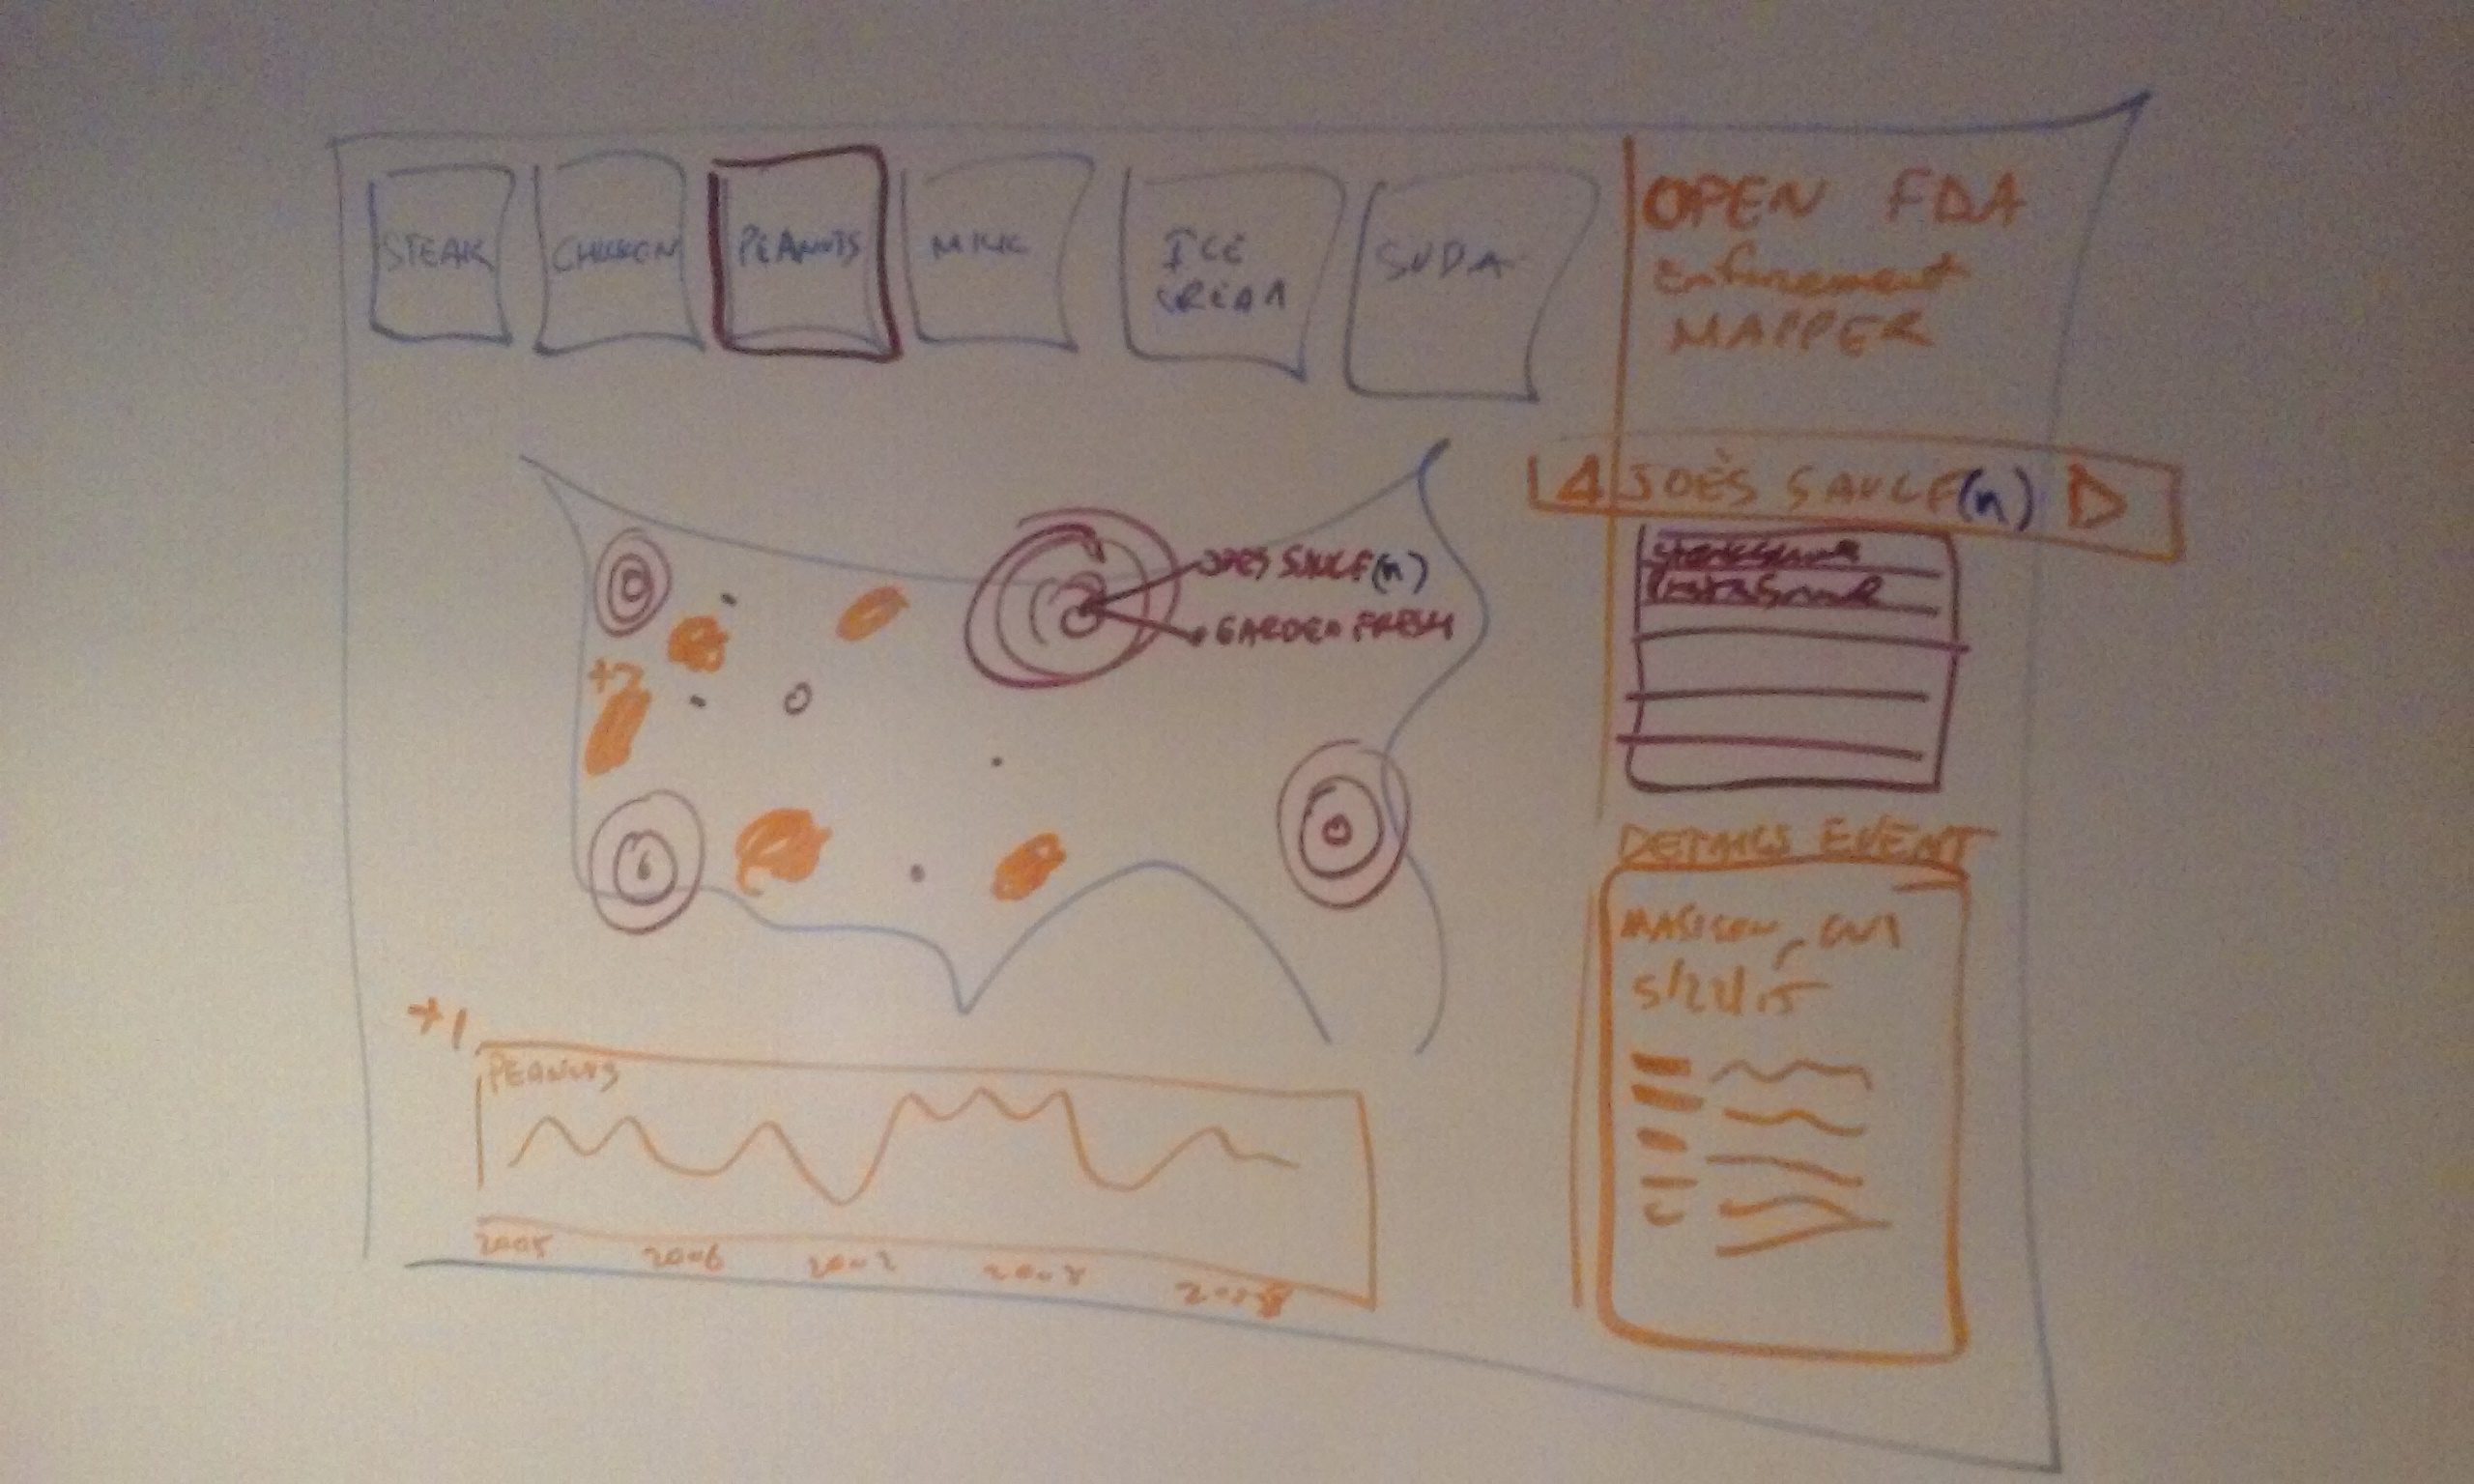 STEAK
CHICKEN
PEANUTS
MILK
ICE
CREAM
SODA
OPEN FDA
Enforcement
MAPPER
JOE'S SAUCE(n)
JOES SAUCE(n)
GARDEN FRESH
+2
DETAILS EVENT
MADISON, WI
5/22/15
+1
PEANUTS
2005 2006 2007 2008